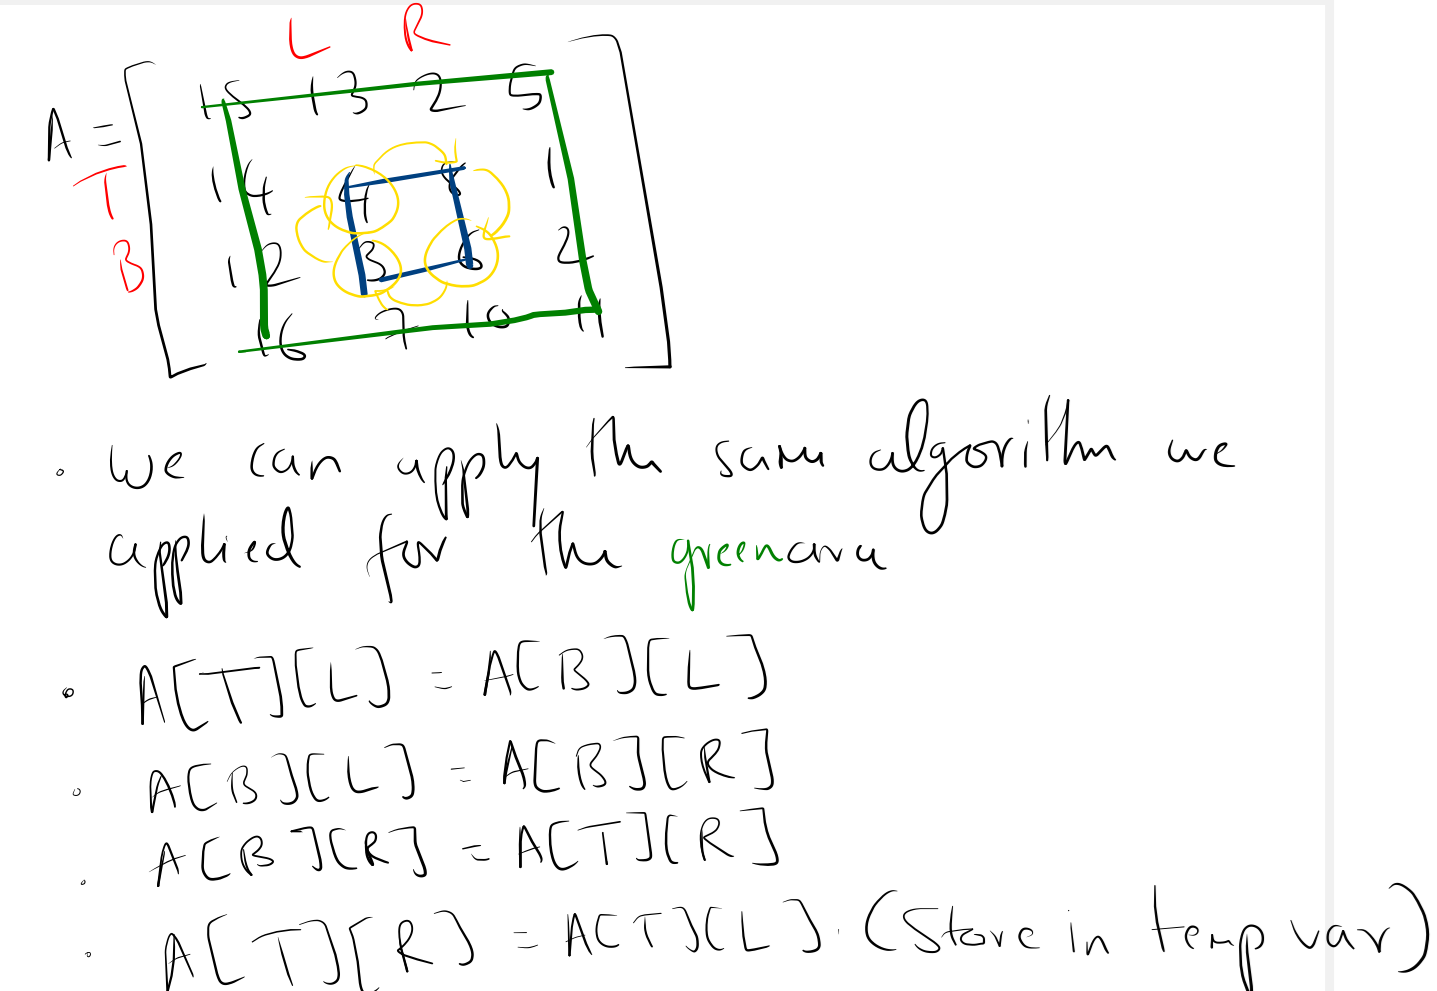 L R
A = 15 13 2 5
T 14 4 8 1
B 12 3 6 2
16 7 10 11
. we can apply the same algorithm we
applied for the green area
. A[T][L] = A[B][L]
. A[B][L] = A[B][R]
. A[B][R] = A[T][R]
. A[T][R] = A[T][L]. (Store in temp var)